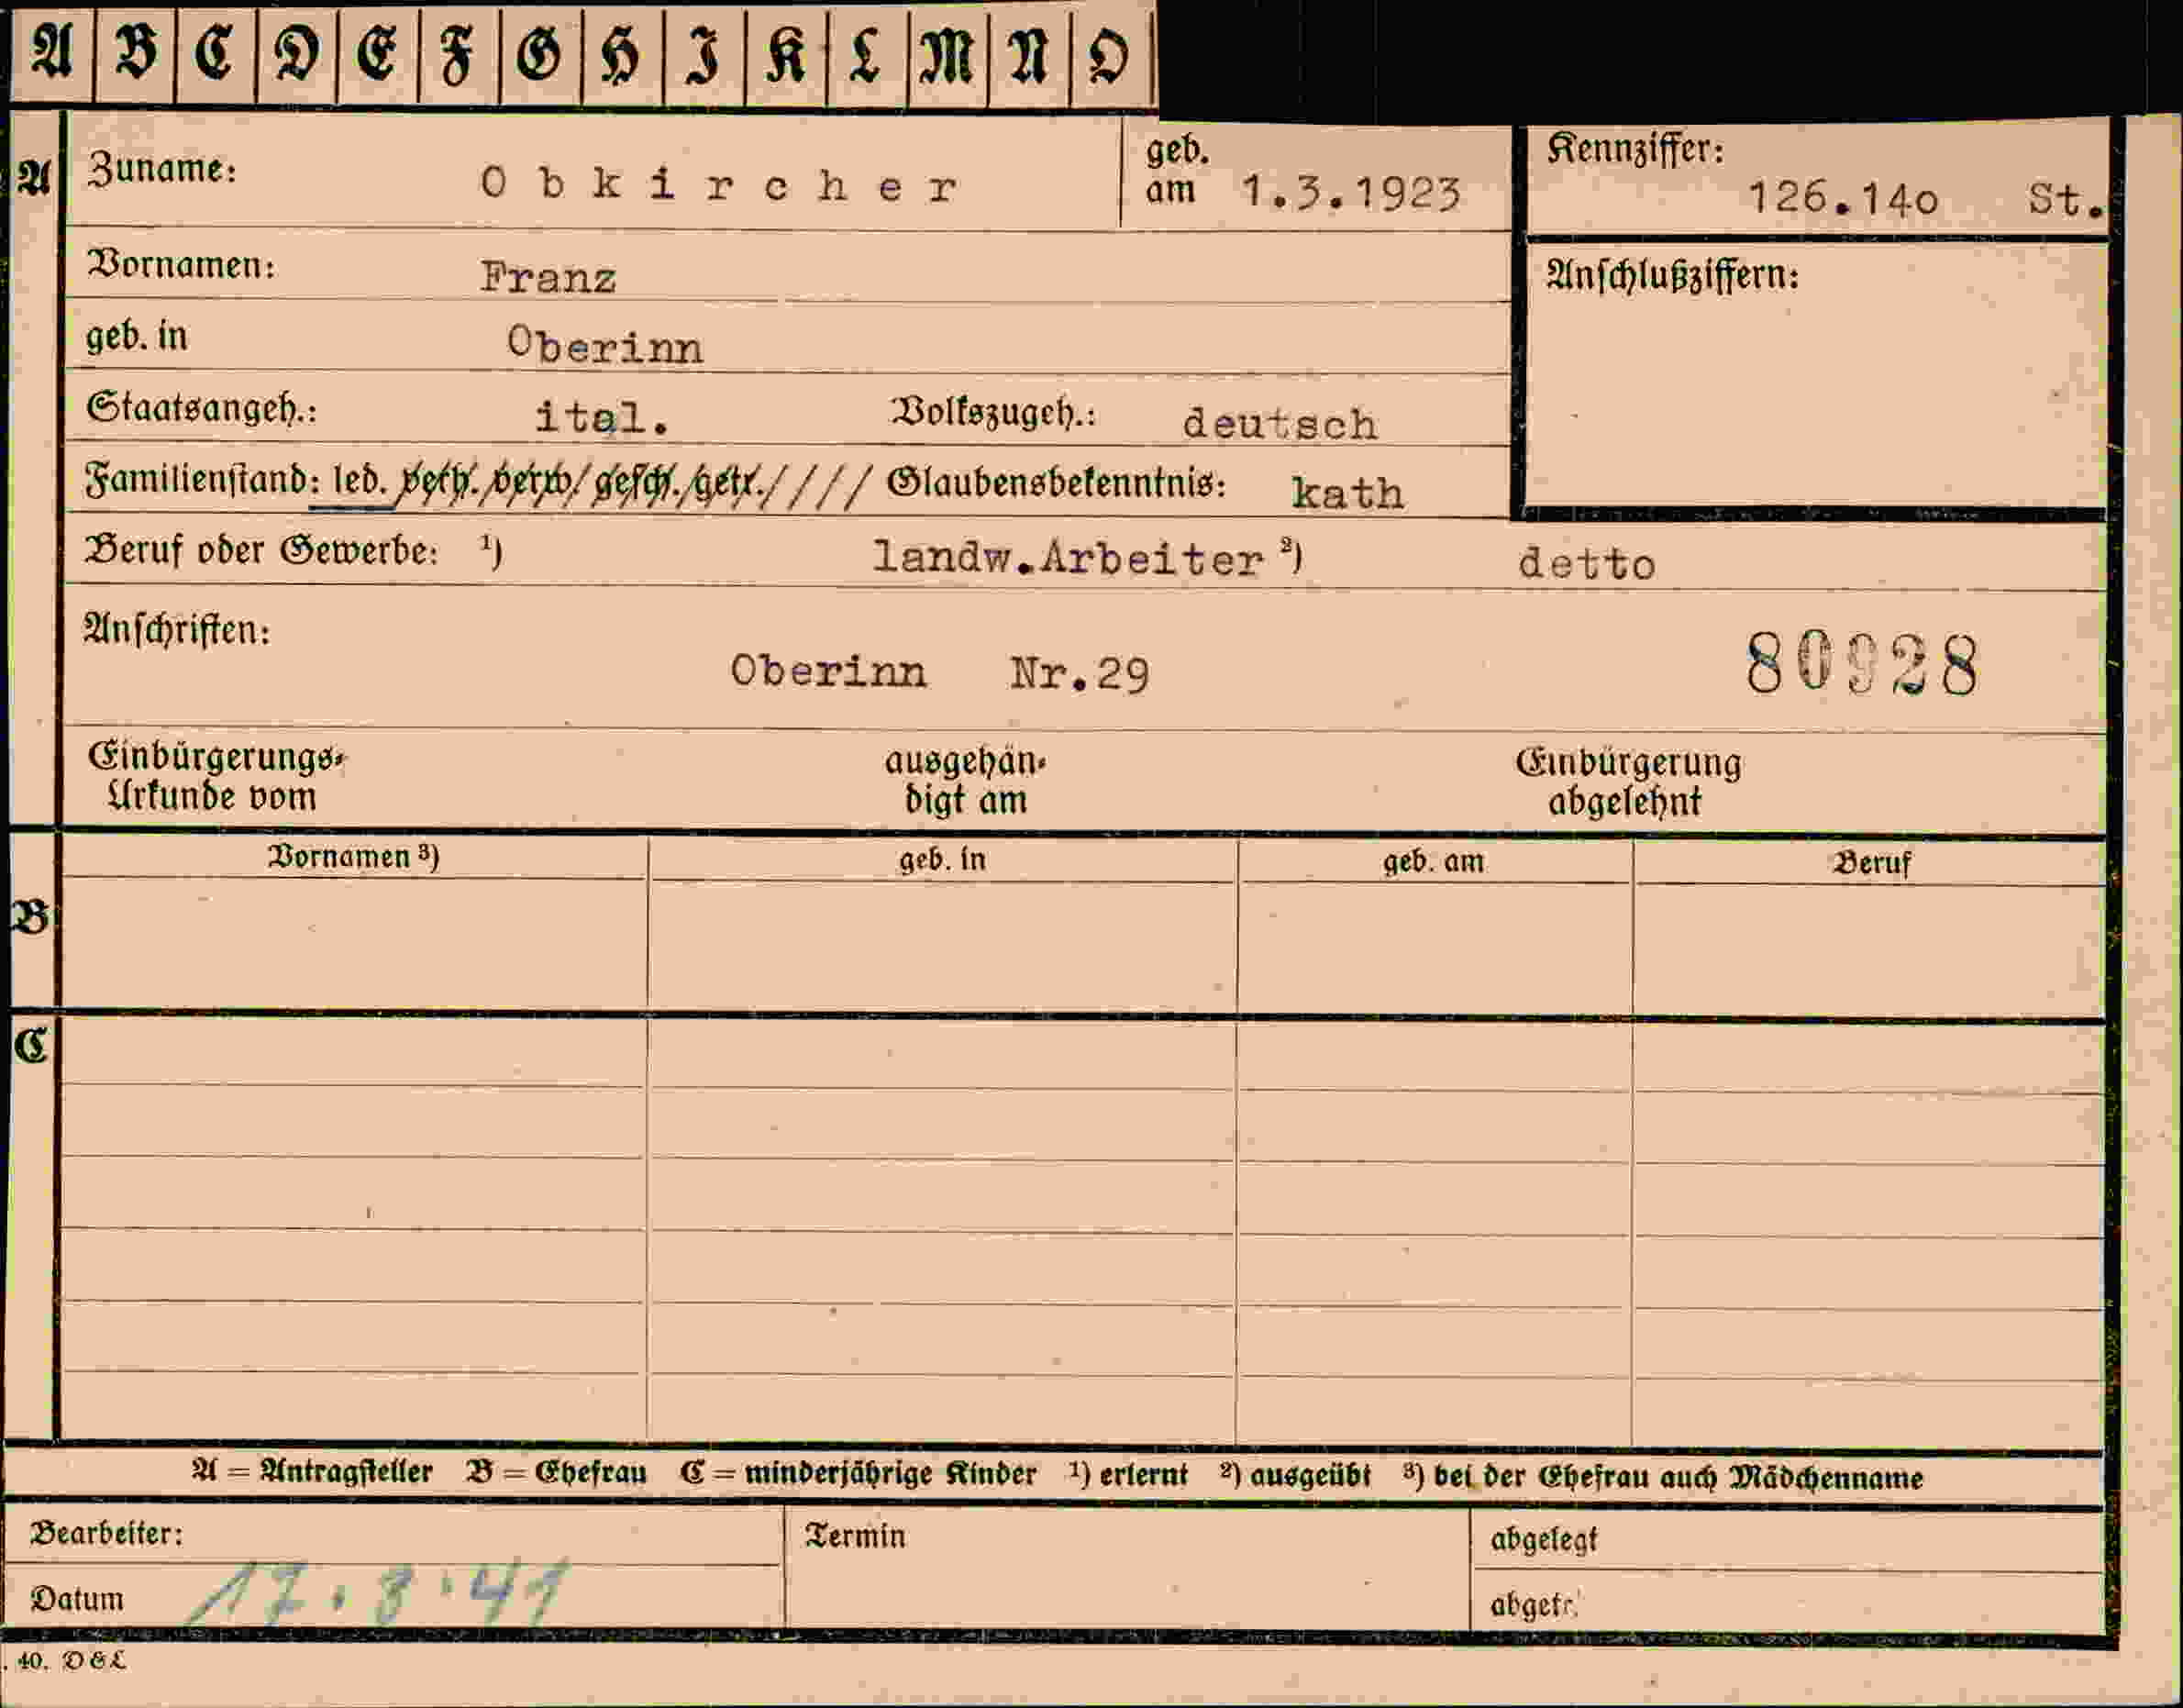 A B C D E F G H I K L M N O
A Zuname: Obkircher geb. am 1.3.1923 Kennziffer: 126.14o St.
Vornamen: Franz Anschlußziffern:
geb. in Oberinn
Staatsangeh.: ital. Volkszugeh.: deutsch
Familienstand: led. verh. verw. gesch. getr. //// Glaubensbekenntnis: kath
Beruf oder Gewerbe: ¹) landw.Arbeiter ²) detto
Anschriften:
Oberinn Nr.29 80928
Einbürgerungs- ausgehän- Einbürgerung
Urkunde vom digt am abgelehnt
Vornamen ³) geb. in geb. am Beruf
B
C
A = Antragsteller B = Ehefrau C = minderjährige Kinder ¹) erlernt ²) ausgeübt ³) bei der Ehefrau auch Mädchenname
Bearbeiter: Termin abgelegt
Datum 17.8.41 abgetr.
. 40. D & L